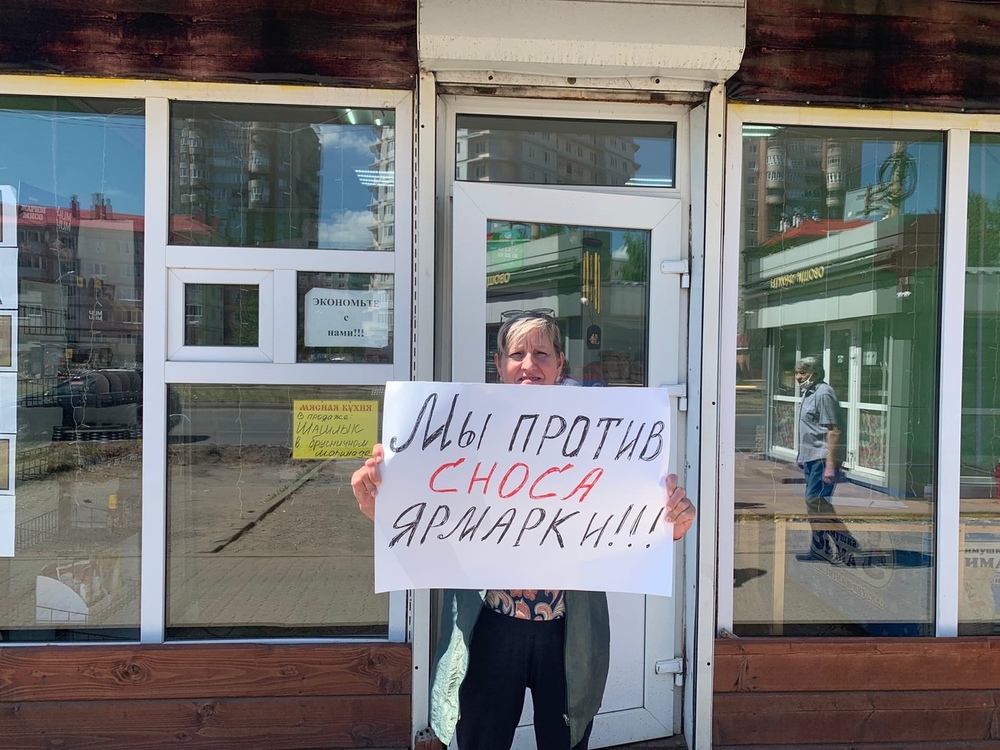 ЭКОНОМЬТЕ
с
нами!!!
МЯСНАЯ КУХНЯ
В продаже
ШАШЛЫК
в брусничном
маринаде
Мы ПРОТИВ
СНОСА
ЯРМАРКИ!!!